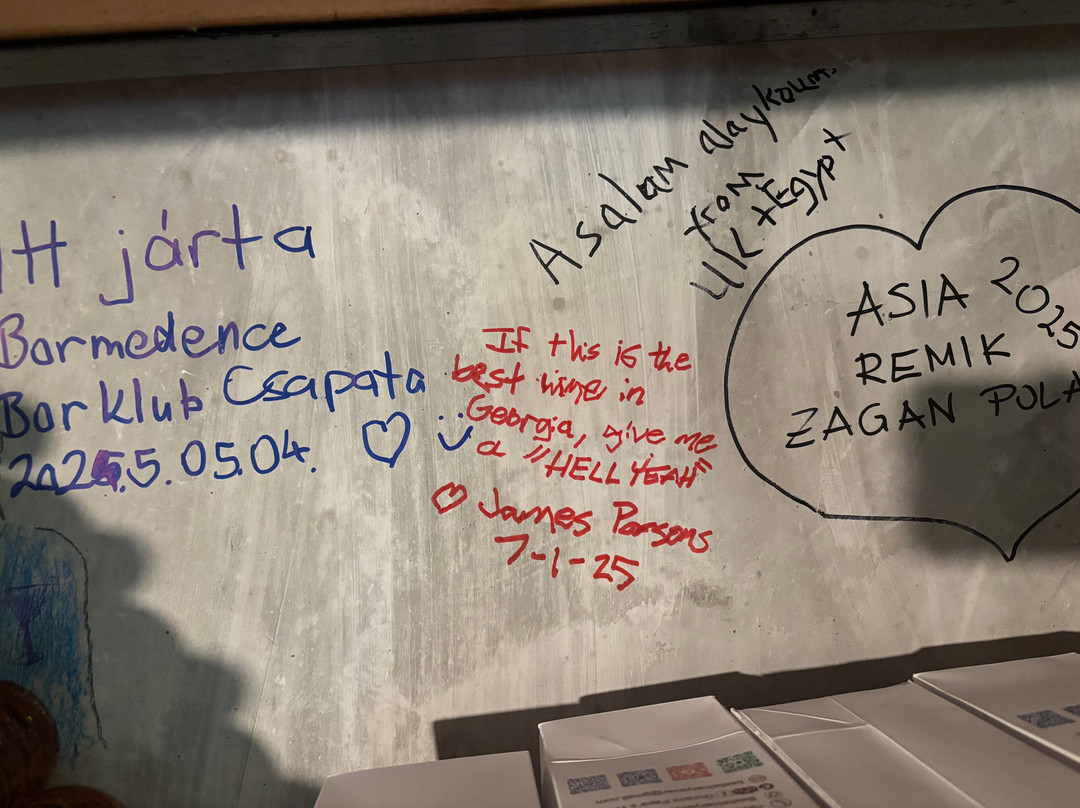 Itt járta
Bormedence
Bor klub Csapata
2025.05.04.
Asalam alaykoum
from
UK + Egypt
If this is the
best wine in
Georgia, give me
a "HELL YEAH"
James Parsons
7-1-25
ASIA 2025
REMIK
ZAGAN POLA